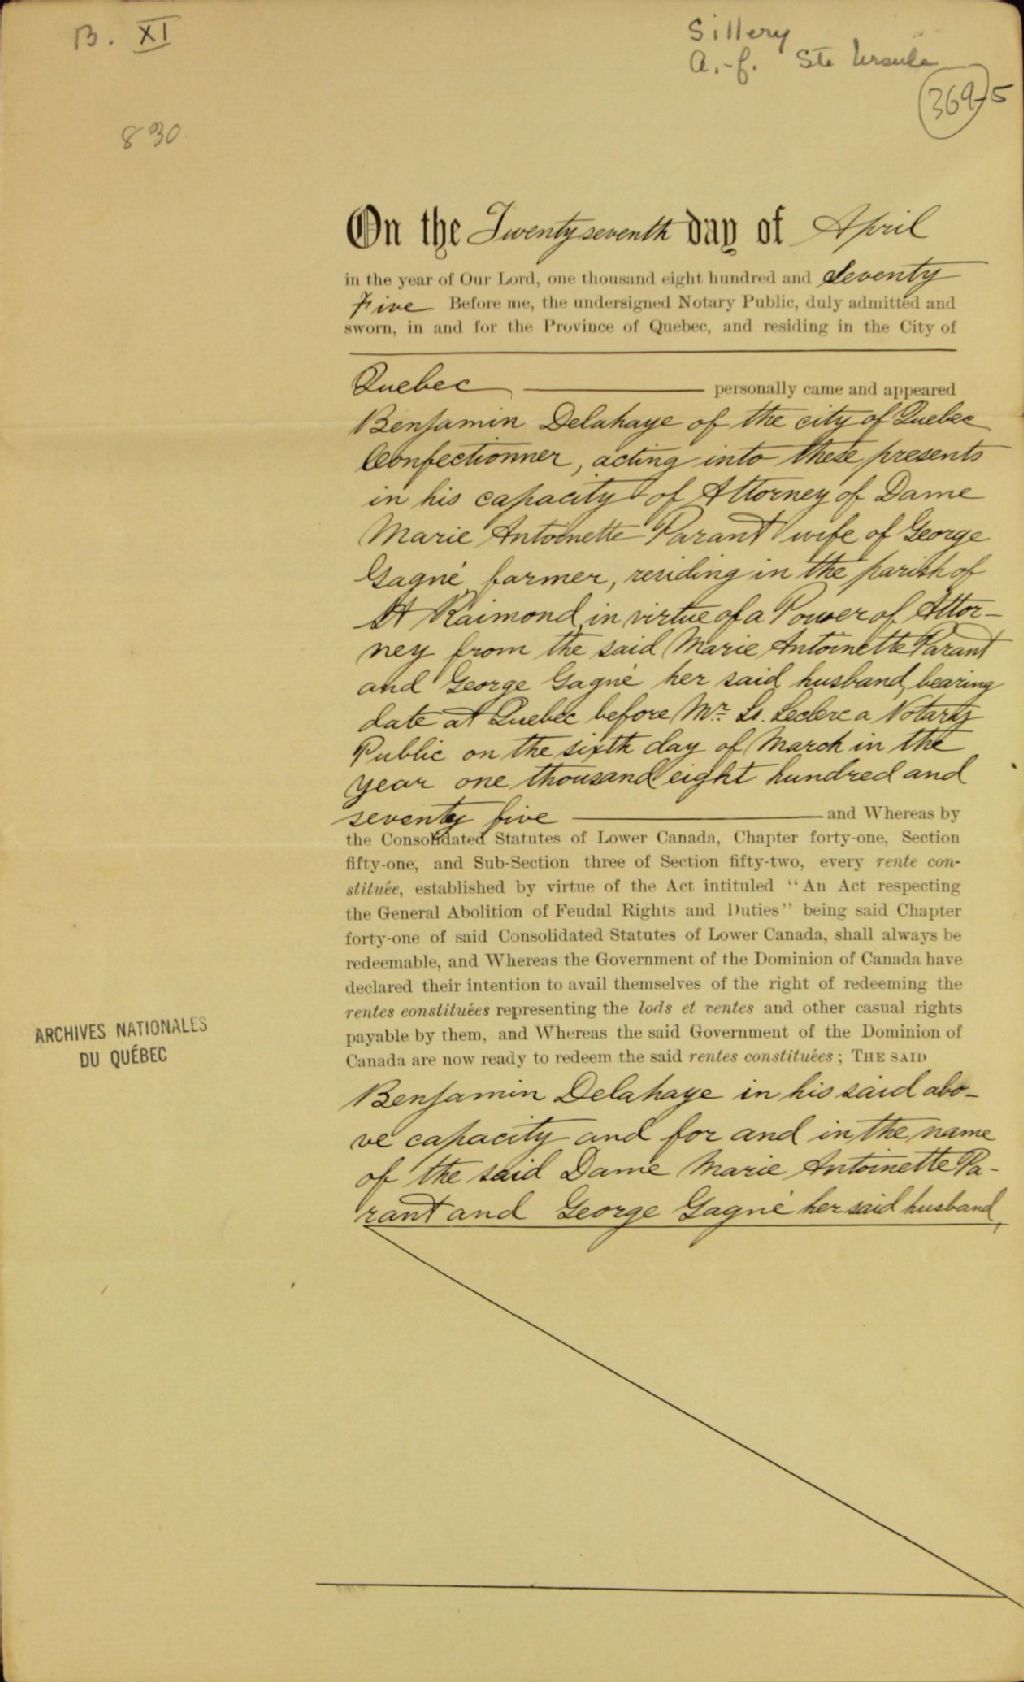 B. XI
Sillery
A.-f. Ste Ursule
369-5
830
On the Twenty seventh day of April
in the year of Our Lord, one thousand eight hundred and Seventy
Five Before me, the undersigned Notary Public, duly admitted and
sworn, in and for the Province of Quebec, and residing in the City of
Quebec personally came and appeared
Benjamin Delahaye of the city of Quebec
Confectionner, acting into these presents
in his capacity of Attorney of Dame
Marie Antoinette Parant wife of George
Gagné, farmer, residing in the parish of
St Raimond, in virtue of a Power of Attor-
ney from the said Marie Antoinette Parant
and George Gagné her said husband, bearing
date at Quebec before Mr. Ls. Leclerc a Notary
Public on the sixth day of March in the
year one thousand eight hundred and
seventy five and Whereas by
the Consolidated Statutes of Lower Canada, Chapter forty-one, Section
fifty-one, and Sub-Section three of Section fifty-two, every rente con-
stituée, established by virtue of the Act intituled "An Act respecting
the General Abolition of Feudal Rights and Duties" being said Chapter
forty-one of said Consolidated Statutes of Lower Canada, shall always be
redeemable, and Whereas the Government of the Dominion of Canada have
declared their intention to avail themselves of the right of redeeming the
rentes constituées representing the lods et ventes and other casual rights
payable by them, and Whereas the said Government of the Dominion of
Canada are now ready to redeem the said rentes constituées; THE SAID
ARCHIVES NATIONALES
DU QUÉBEC
Benjamin Delahaye in his said abo-
ve capacity and for and in the name
of the said Dame Marie Antoinette Pa-
rant and George Gagné her said husband,